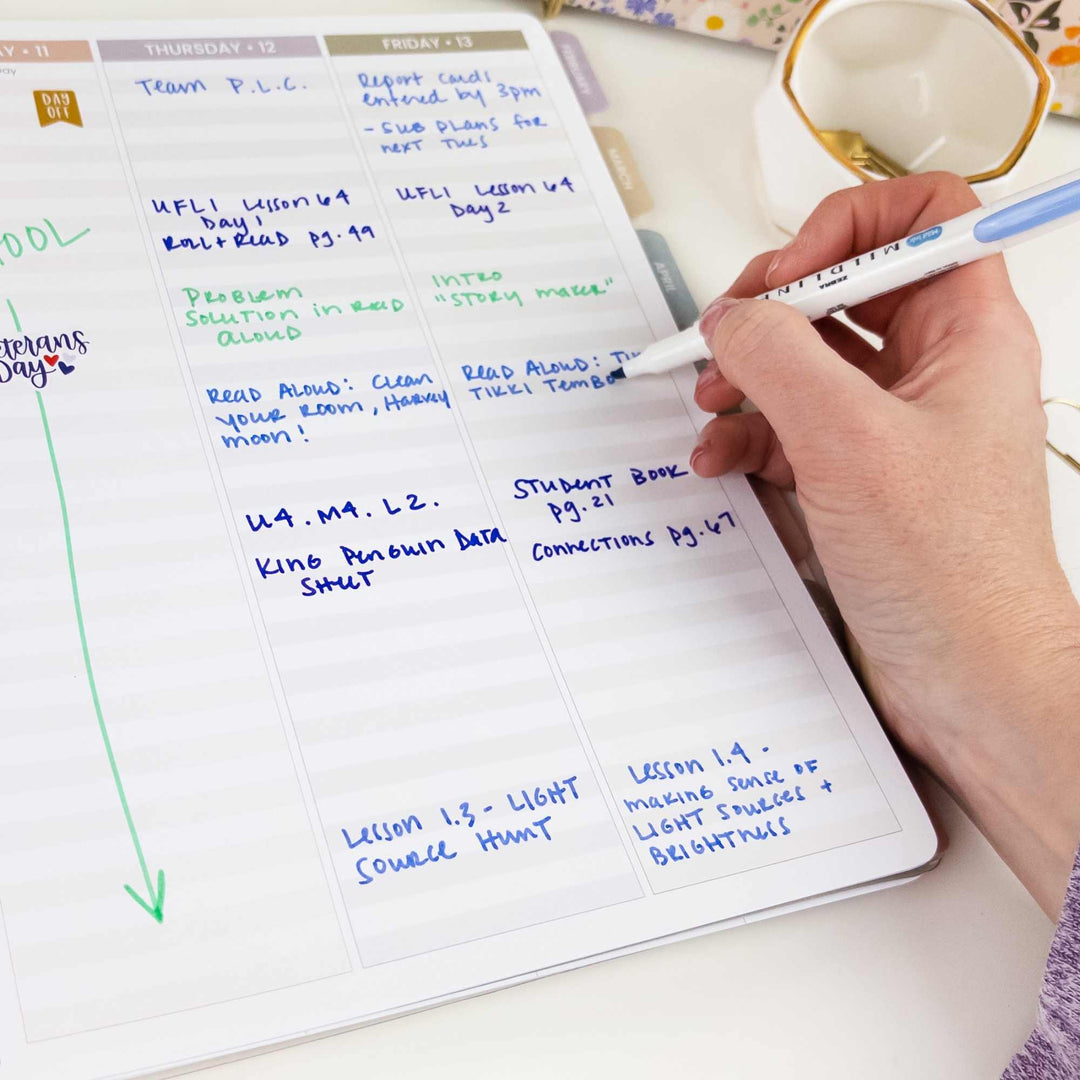 Y • 11
DAY
OFF
OOL
eterans
Day
THURSDAY • 12
Team P.L.C.
UFLI Lesson 64
Day 1
Roll + Read pg. 49
Problem
Solution in Read
Aloud
Read Aloud: Clean
your Room, Harvey
Moon!
U4. M4. L2.
King Penguin Data
Sheet
Lesson 1.3 - Light
Source Hunt
FRIDAY • 13
Report Cards
entered by 3pm
- Sub plans for
next Tues
UFLI Lesson 64
Day 2
Intro
"Story Maker"
Read Aloud: Tik
Tikki Tembo
Student Book
pg. 21
Connections pg. 67
Lesson 1.4 -
Making Sense of
Light Sources +
Brightness
FEBRUARY
MARCH
APRIL
ZEBRA
MILDLINE